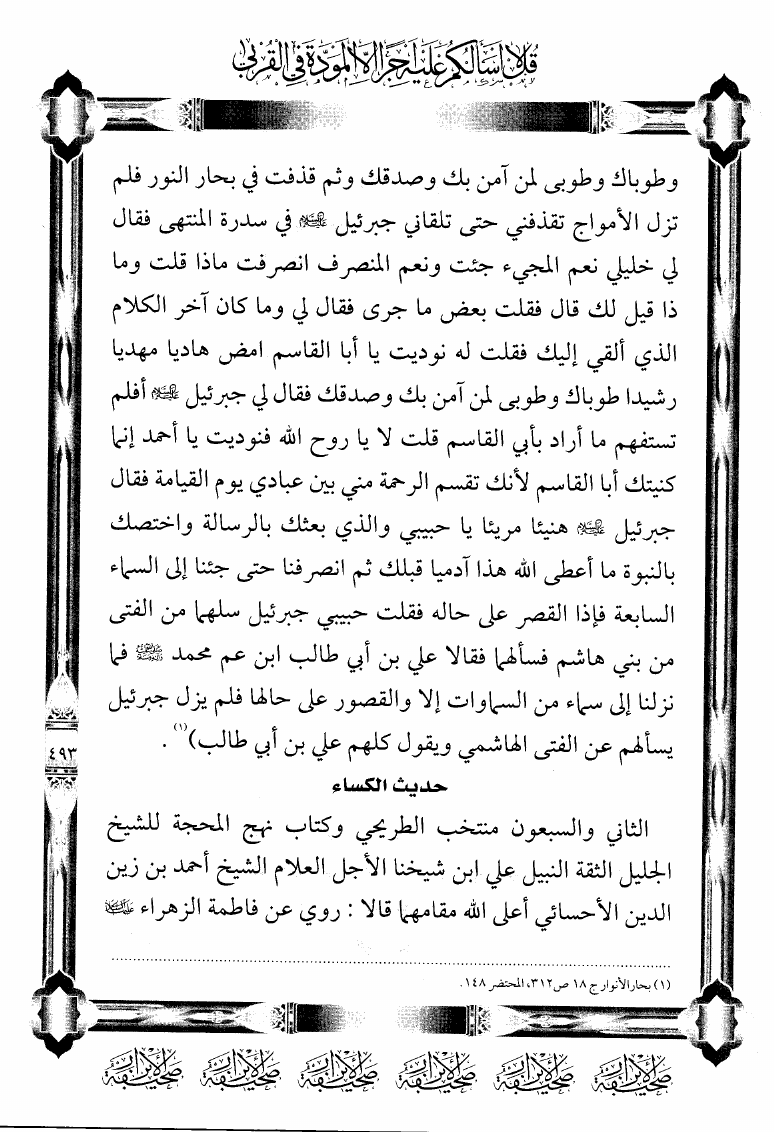 قل لا اسألكم عليه اجرا الا المودة في القربى
وطوباك وطوبى لمن آمن بك وصدقك وثم قذفت في بحار النور فلم
تزل الأمواج تقذفني حتى تلقاني جبرئيل عليه السلام في سدرة المنتهى فقال
لي خليلي نعم المجيء جئت ونعم المنصرف انصرفت ماذا قلت وما
ذا قيل لك قال فقلت بعض ما جرى فقال لي وما كان آخر الكلام
الذي ألقي إليك فقلت له نوديت يا أبا القاسم امض هاديا مهديا
رشيدا طوباك وطوبى لمن آمن بك وصدقك فقال لي جبرئيل عليه السلام أفلم
تستفهم ما أراد بأبي القاسم قلت لا يا روح الله فنوديت يا أحمد إنما
كنيتك أبا القاسم لأنك تقسم الرحمة مني بين عبادي يوم القيامة فقال
جبرئيل عليه السلام هنيئا مريئا يا حبيبي والذي بعثك بالرسالة واختصك
بالنبوة ما أعطى الله هذا آدميا قبلك ثم انصرفنا حتى جئنا إلى السماء
السابعة فإذا القصر على حاله فقلت حبيبي جبرئيل سلهما من الفتى
من بني هاشم فسألهما فقالا علي بن أبي طالب ابن عم محمد ﷺ فما
نزلنا إلى سماء من السماوات إلا والقصور على حالها فلم يزل جبرئيل
يسألهم عن الفتى الهاشمي ويقول كلهم علي بن أبي طالب)(١) .
٤٩٣
حديث الكساء
الثاني والسبعون منتخب الطريحي وكتاب نهج المحجة للشيخ
الجليل الثقة النبيل علي ابن شيخنا الأجل العلام الشيخ أحمد بن زين
الدين الأحسائي أعلى الله مقامهما قالا : روي عن فاطمة الزهراء عليها السلام
(١) بحار الأنوار ج ١٨ ص٣١٢، المحتضر ١٤٨.
صحيفة الابرار صحيفة الابرار صحيفة الابرار صحيفة الابرار صحيفة الابرار صحيفة الابرار